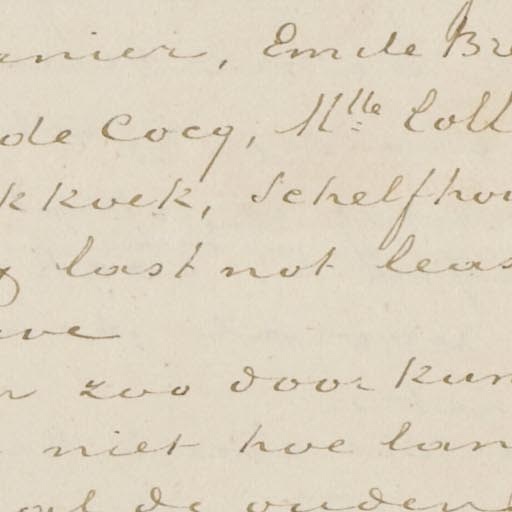 nier, Em de Bre
de Cocq, Mlle Coll
kkoek, Schelfhou
last not leas
eve
zoo door kun
niet hoe lan
de ouden